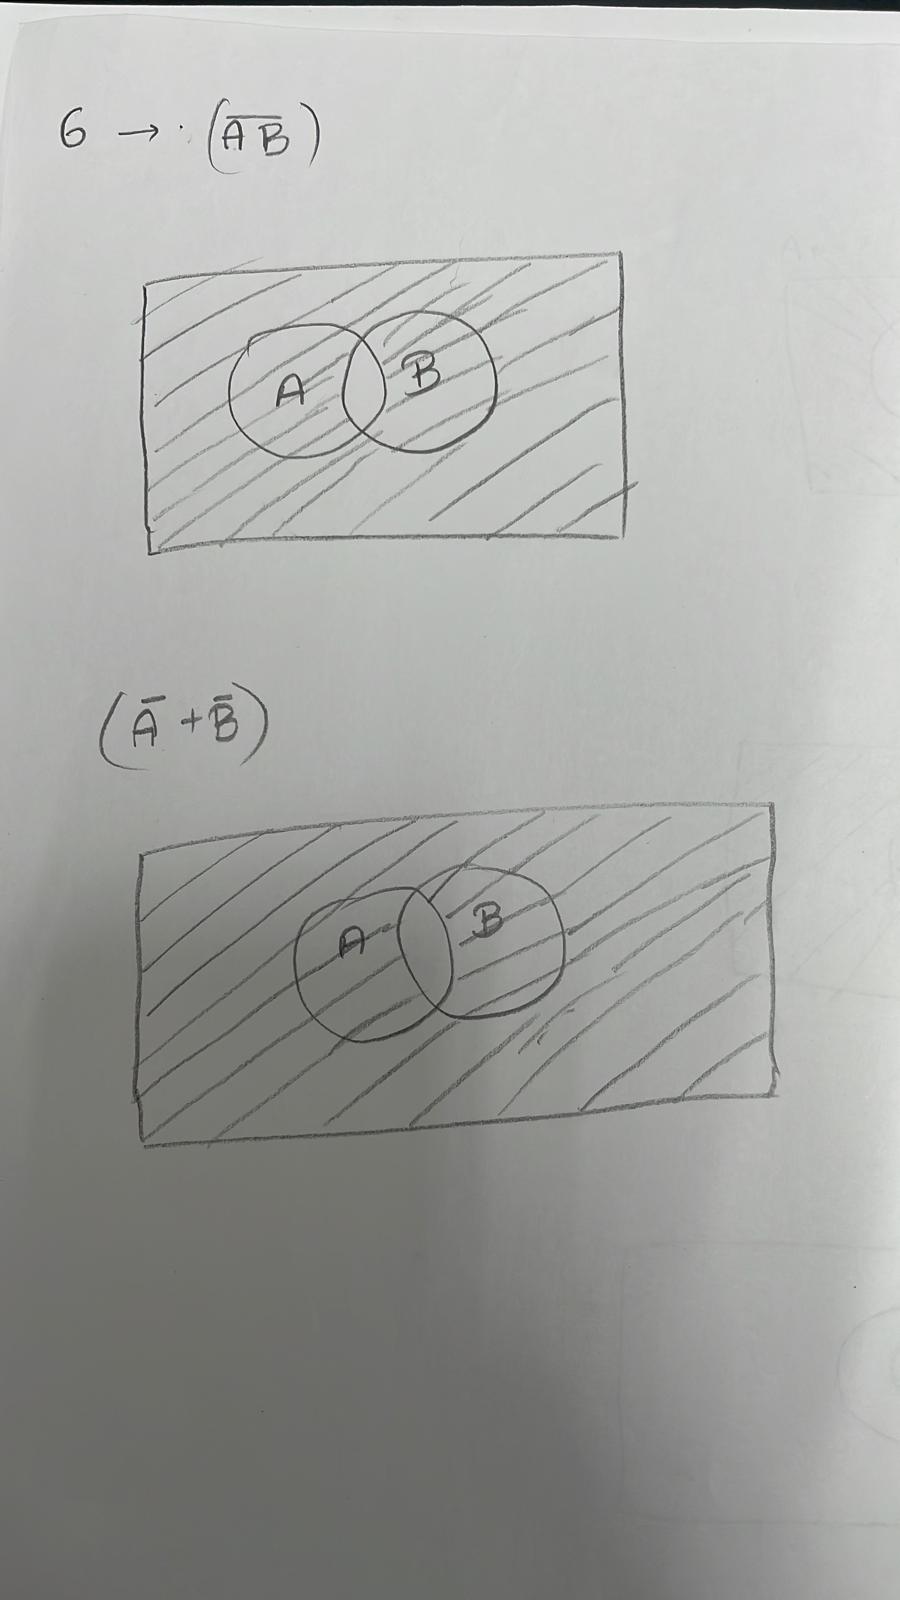 6 → · (A̅B̅)
A B
(A̅ + B̅)
A B